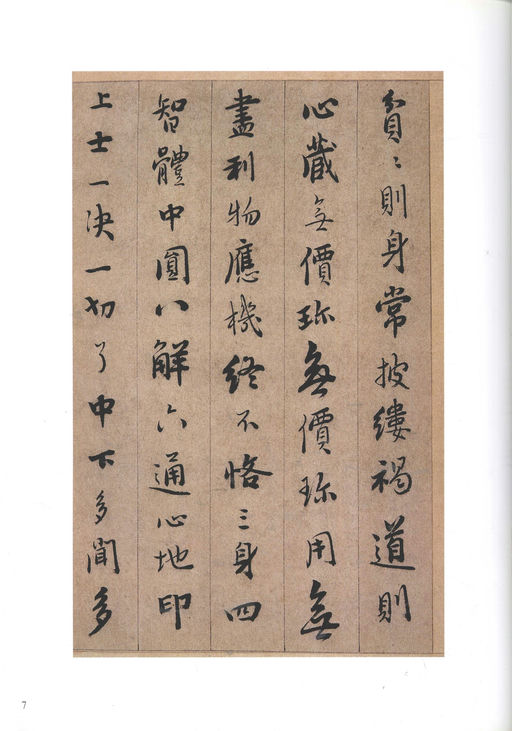 貧〻則身常披縷褐道則
心藏無價珎無價珎用無
盡利物應機終不恪三身四
智體中圓八解六通心地印
上士一决一切了中下多聞多
7